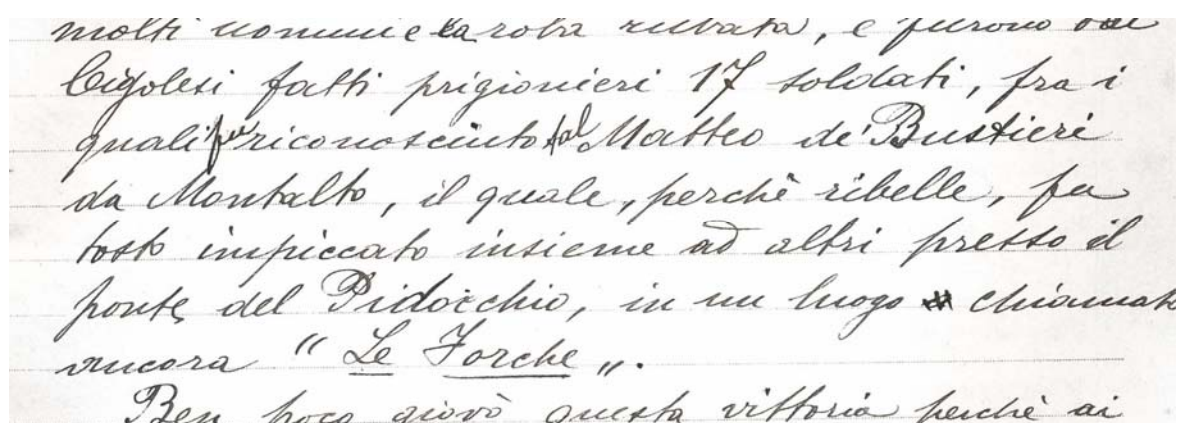 molti uomini e la roba rubata, e furono dai
Cigolesi fatti prigionieri 17 soldati, fra i
quali fu riconosciuto tal Matteo de' Bustieri
da Montalto, il quale, perchè ribelle, fu
tosto impiccato insieme ad altri presso il
ponte del Pidocchio, in un luogo chiamato
ancora "Le Forche".
Ben poco giovò questa vittoria perchè ai